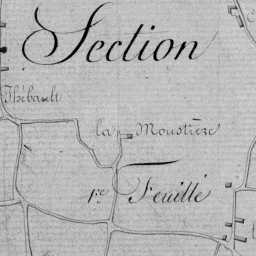 Section
Thébault
la Moustière
1.re Feuille